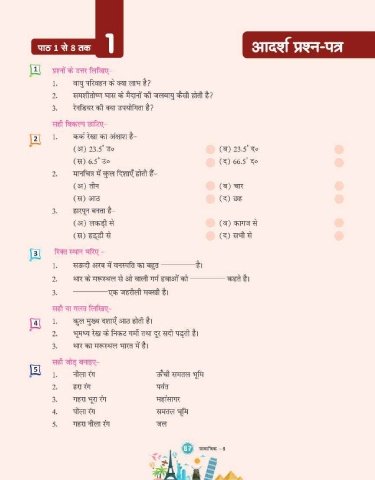 पाठ 1 से 8 तक 1 आदर्श प्रश्न-पत्र
1 प्रश्नों के उत्तर लिखिए-
1. वायु परिवहन के क्या लाभ है?
2. समशीतोष्ण घास के मैदानों की जलवायु कैसी होती है?
3. रेनडियर की क्या उपयोगिता है?
सही विकल्प छाटिए-
2 1. कर्क रेखा का अंक्षाश है-
(अ) 23.5° उ० (ब) 23.5° द०
(स) 6.5° उ० (द) 66.5° द०
2. मानचित्र में कुल दिशाएँ होती हैं-
(अ) तीन (ब) चार
(स) आठ (द) छह
3. हारपून बनता है-
(अ) लकड़ी से (ब) कागज से
(स) हड्डी से (द) सभी से
3 रिक्त स्थान भरिए -
1. सऊदी अरब में वनस्पति का बहुत ———— है।
2. थार के मरूस्थल से आने वाली गर्म हवाओं को ———— कहते है।
3. ————एक जहरीली मक्खी है।
सही या गलत लिखिए-
4 1. कुल मुख्य दशाएँ आठ होती है।
2. भूमध्य रेख के निकट गर्मी तथा दूर सर्दी पड़ती है।
3. थार का मरूस्थल भारत में है।
सही जोड़ बनाइए-
5 1. नीला रंग ऊँची समतल भूमि
2. हरा रंग पर्वत
3. गहरा भूरा रंग महासागर
4. पीला रंग समतल भूमि
5. गहरा नीला रंग जल
87 सामाजिक - 6